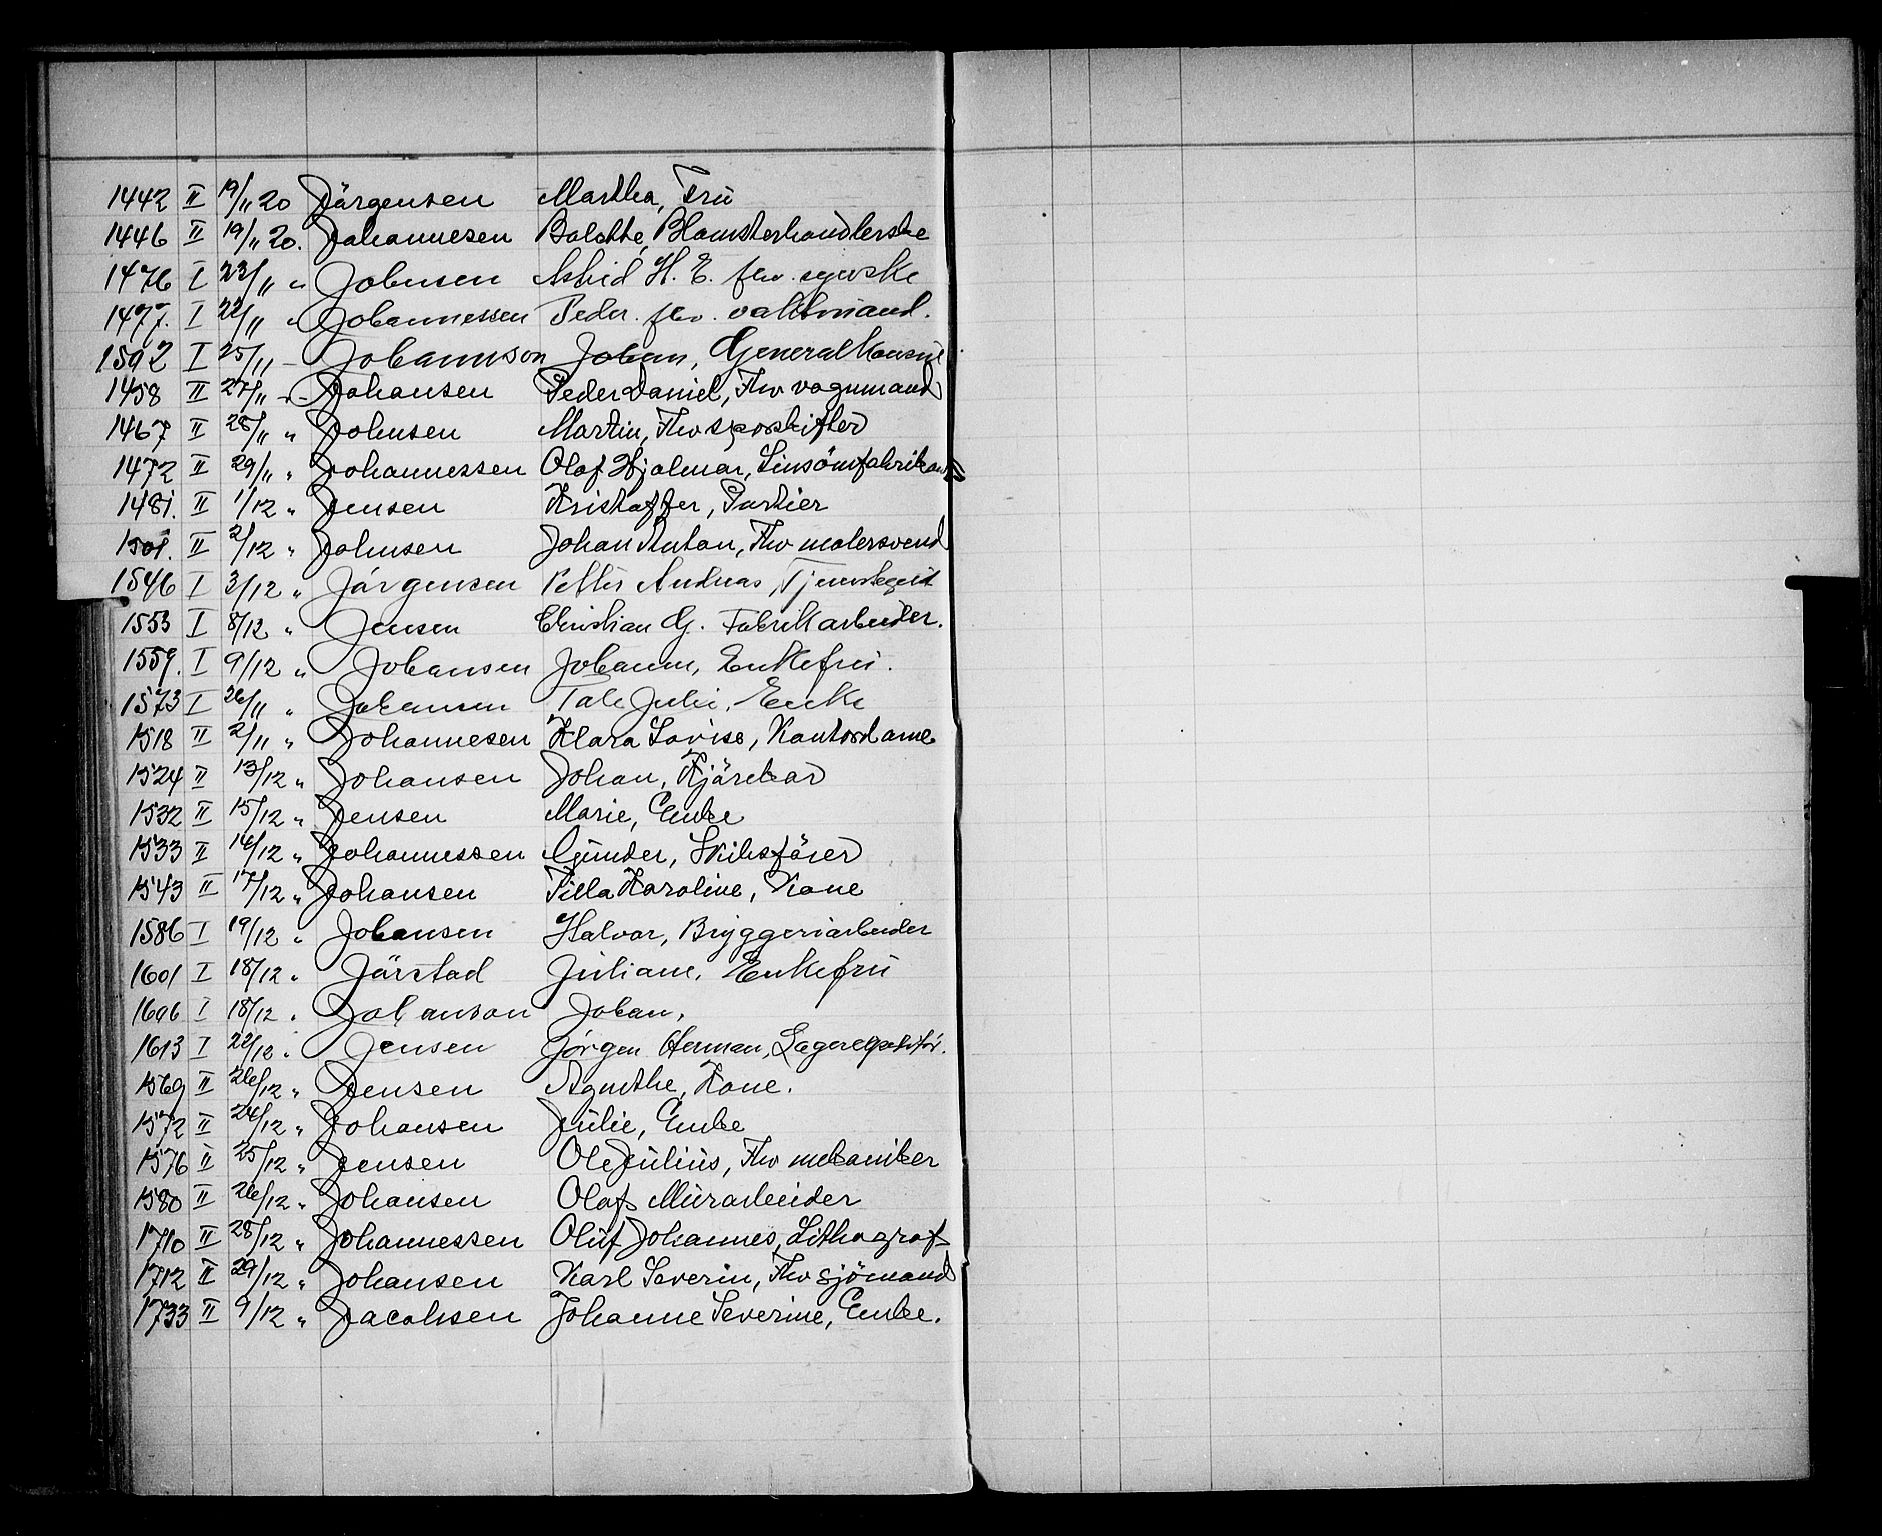 1442 II 19/11 20 Jörgensen Martha, Frü
1446 II 19/11 20. Johannesen Bolette, Blomsterhandlerske
1476 I 23/11 " Johnsen Astrid H. E. fhv. syerske
1477. I 22/11 " Johannessen Peder. fhv. vaktmand.
1592 I 25/11 - Johannson Johan, Generalkonsul
1458 II 27/11 " Johansen Peder Daniel, Fhv vognmand
1467 II 28/11 " Johnsen Martin, Fhv sporskifter
1472 II 29/11 " Johannessen Olaf Hjalmar, Linsömfabrikant
1481. II 1/12 " Jensen Kristoffer, Portier
1501. II 2/12 " Johnsen Johan Anton, Fhv malersvend
1546 I 3/12 " Jörgensen Petter Andreas, Tjenstegut
1553 I 8/12 " Jensen Christian G. Fabrikarbeider.
1559. I 9/12 " Johansen Johanne, Enkefru.
1573 I 26/11 " Johansen Tale Julie, Enke
1518 II 2/11 " Johannesen Klara Lovise, Kontordame
1524 II 13/12 " Johansen Johan, Kjörekar
1532 II 15/12 " Jensen Marie, Enke
1533 II 16/12 " Johannessen Gunder, Skibsförer
1543 II 17/12 " Johansen Pilla Karoline, Kone
1586 I 19/12 " Johansen Halvor, Bryggeriarbeider
1601 I 18/12 " Jörstad Juliane, Enkefru
1606 I 18/12 " Johanson Johan,
1613 I 22/12 " Jensen Jörgen Herman, Lagerexpeditör.
1569 II 26/12 " Jensen Agnethe, Kone.
1572 II 24/12 " Johansen Julie, Enke
1576 II 25/12 " Jensen Ole Julius, Fhv mekaniker
1580 II 26/12 " Johansen Olaf, Murarbeider
1710 II 28/12 " Johannessen Oluf Johannes, Lithograf
1712 II 29/12 " Johansen Karl Severin, Fhv sjömand
1733 II 9/12 " Jacobsen Johanne Severine, Enke.